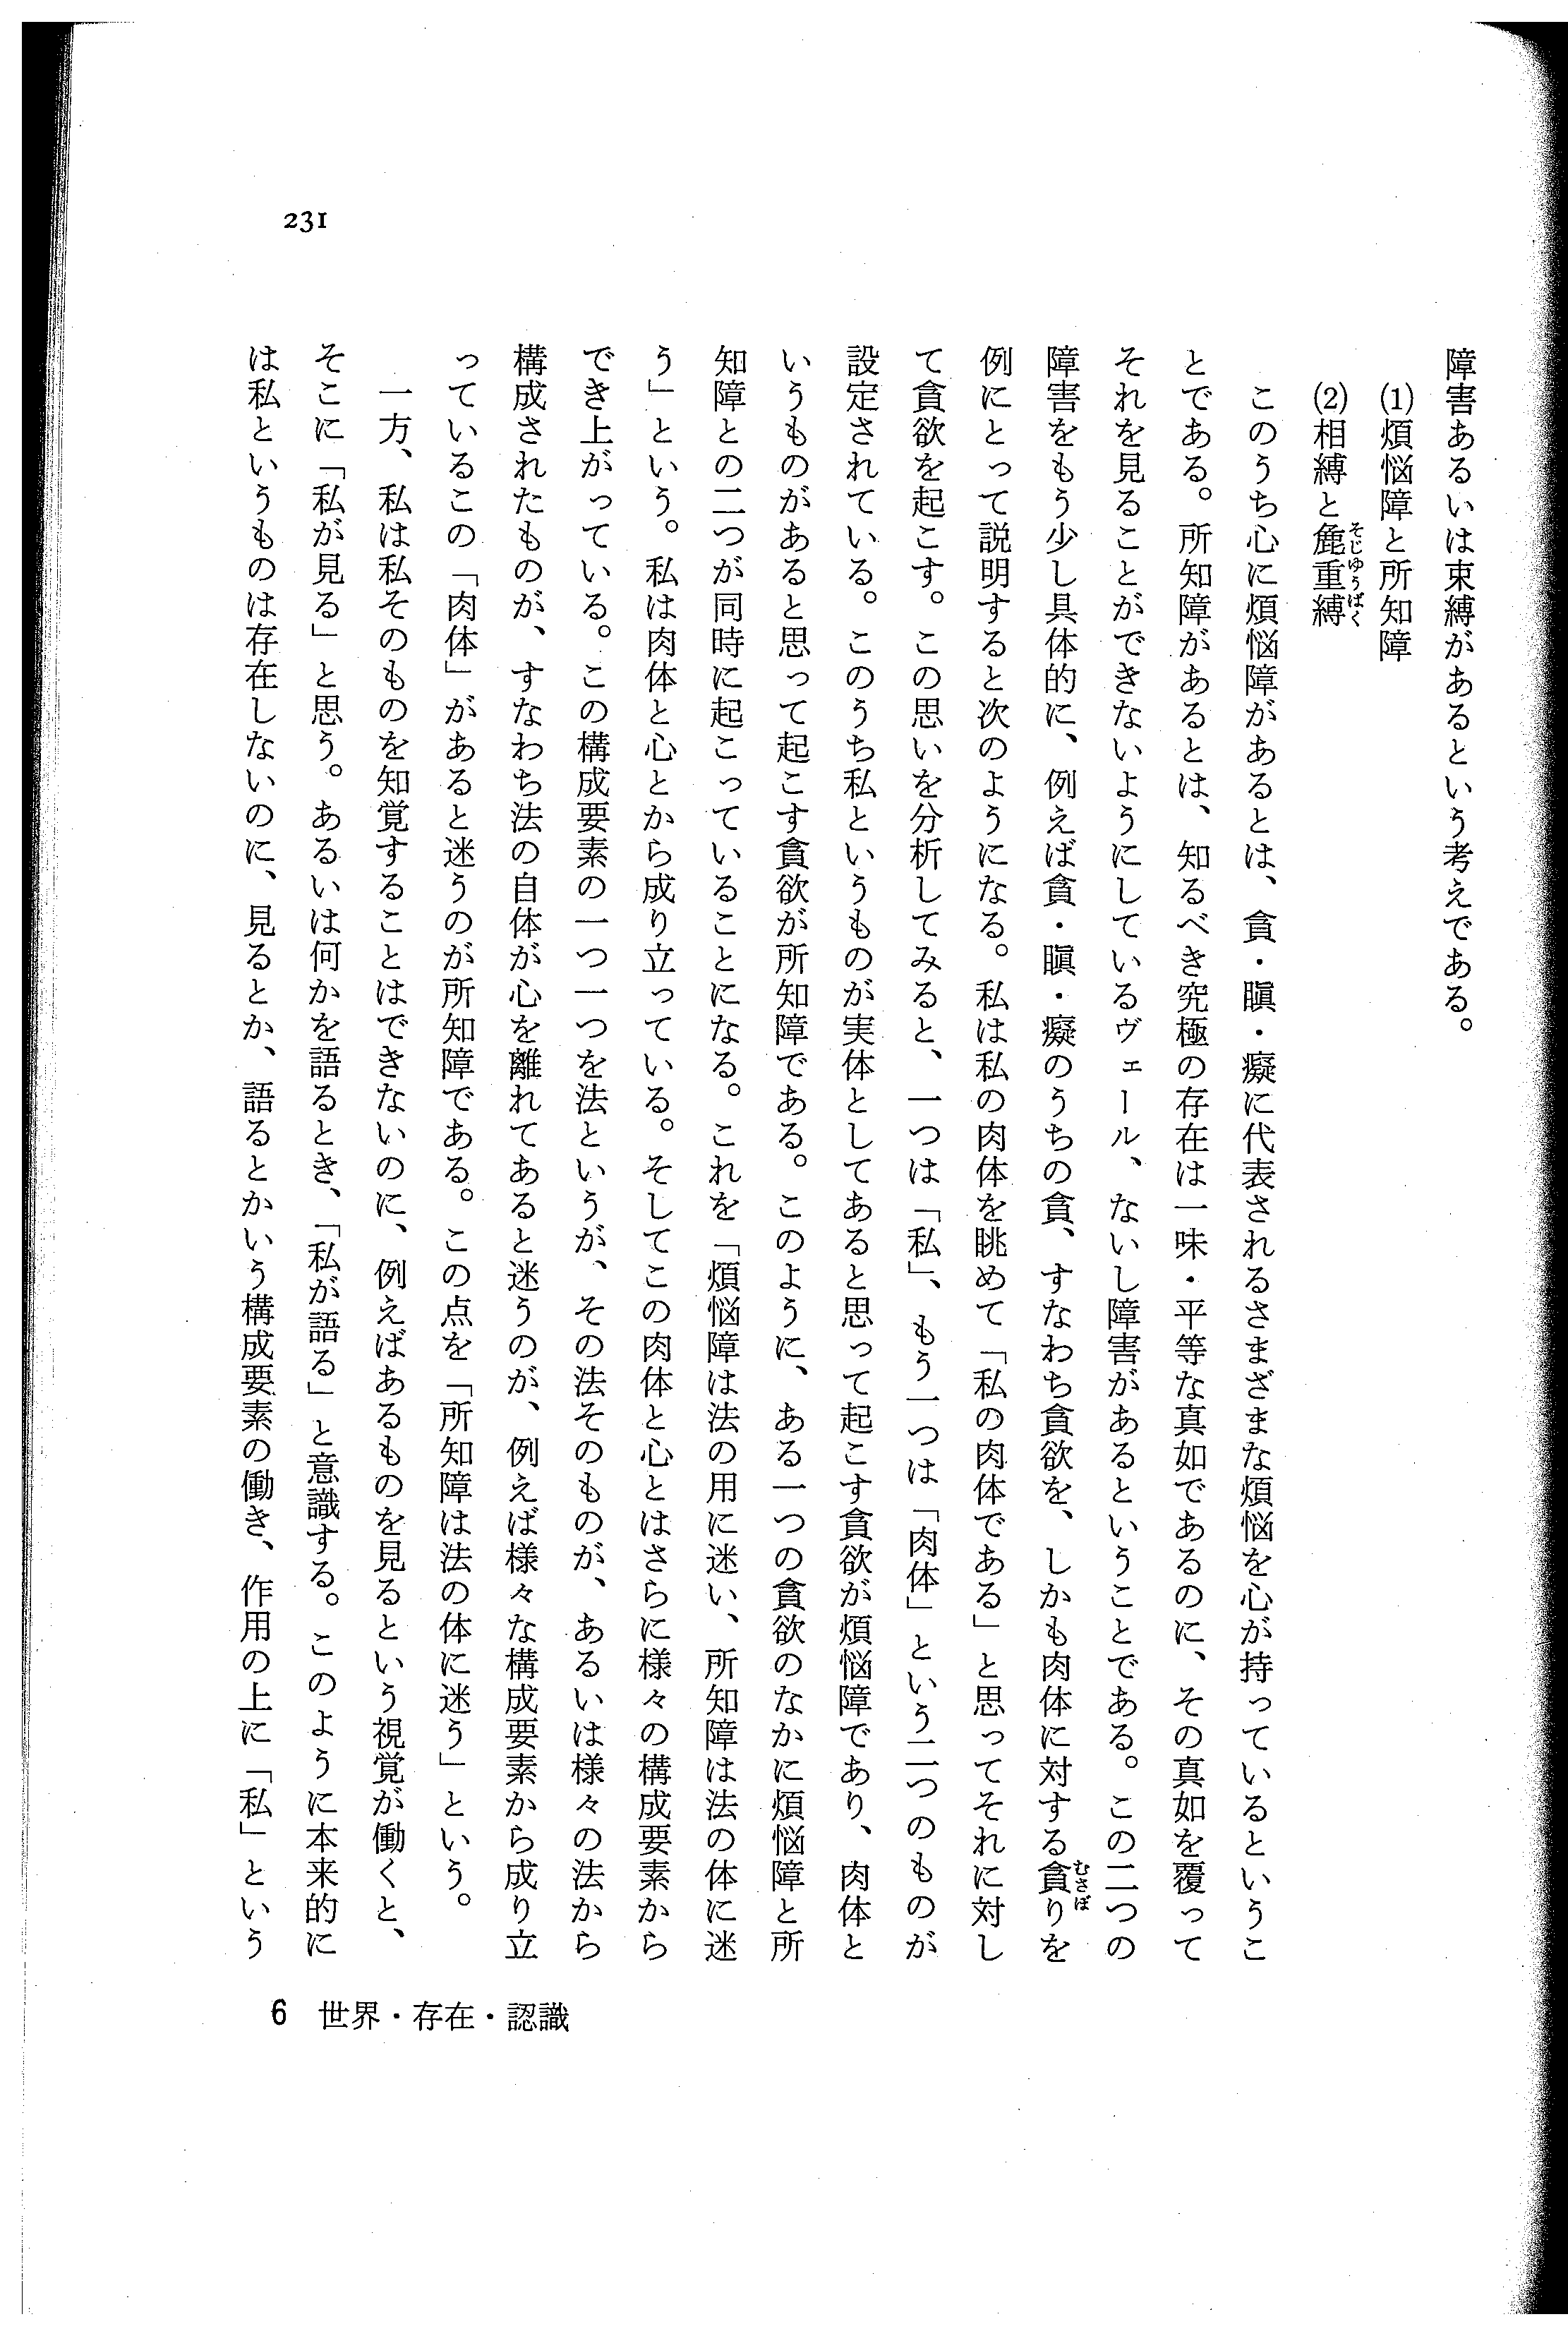 障害あるいは束縛があるという考えである。
(1)煩悩障と所知障
(2)相縛と麁重縛
そじゆうばく
このうち心に煩悩障があるとは、貪・瞋・癡に代表されるさまざまな煩悩を心が持っているというこ
とである。所知障があるとは、知るべき究極の存在は一味・平等な真如であるのに、その真如を覆って
それを見ることができないようにしているヴェール、ないし障害があるということである。この二つの
障害をもう少し具体的に、例えば貪・瞋・癡のうちの貪、すなわち貪欲を、しかも肉体に対する貪りを
むさぼ
例にとって説明すると次のようになる。私は私の肉体を眺めて「私の肉体である」と思ってそれに対し
て貪欲を起こす。この思いを分析してみると、一つは「私」、もう一つは「肉体」という二つのものが
設定されている。このうち私というものが実体としてあると思って起こす貪欲が煩悩障であり、肉体と
いうものがあると思って起こす貪欲が所知障である。このように、ある一つの貪欲のなかに煩悩障と所
知障との二つが同時に起こっていることになる。これを「煩悩障は法の用に迷い、所知障は法の体に迷
う」という。私は肉体と心とから成り立っている。そしてこの肉体と心とはさらに様々の構成要素から
でき上がっている。この構成要素の一つ一つを法というが、その法そのものが、あるいは様々の法から
構成されたものが、すなわち法の自体が心を離れてあると迷うのが、例えば様々な構成要素から成り立
っているこの「肉体」があると迷うのが所知障である。この点を「所知障は法の体に迷う」という。
一方、私は私そのものを知覚することはできないのに、例えばあるものを見るという視覚が働くと、
そこに「私が見る」と思う。あるいは何かを語るとき、「私が語る」と意識する。このように本来的に
は私というものは存在しないのに、見るとか、語るとかいう構成要素の働き、作用の上に「私」という
231
6 世界・存在・認識